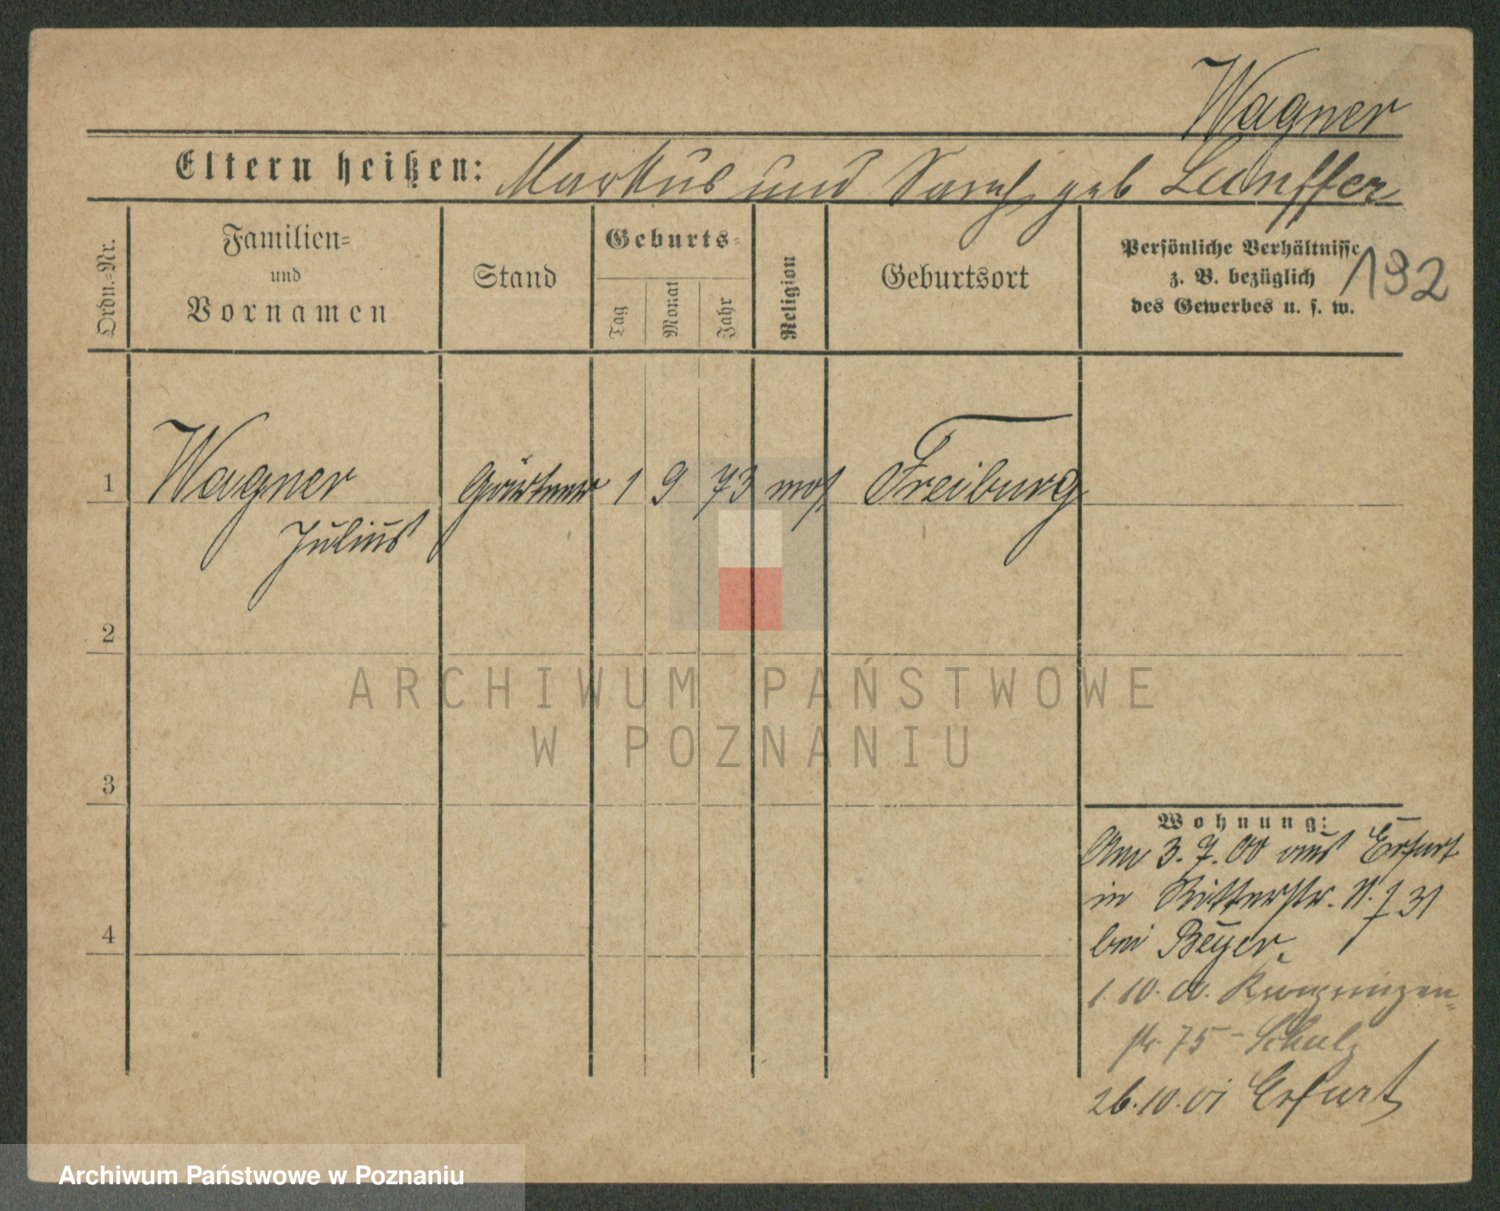 Wagner
Eltern heißen: Markus und Sarah geb
192
Ordn.-Nr.
Familien-
und
Vornamen
Stand
Geburts-
Tag
Monat
Jahr
Religion
Geburtsort
Persönliche Verhältnisse
z. B. bezüglich
des Gewerbes u. s. w.
1 Wagner Gärtner 1 9 73 mos Freiburg
Julius
2
3
4
Wohnung:
Am 3.7.00 aus Erfurt
in Ritterstr. N. 31
bei Beyer.
1.10.00. Kronprinzen-
str 75 - Schulz
26.10.01 Erfurt
ARCHIWUM PAŃSTWOWE
W POZNANIU
Archiwum Państwowe w Poznaniu